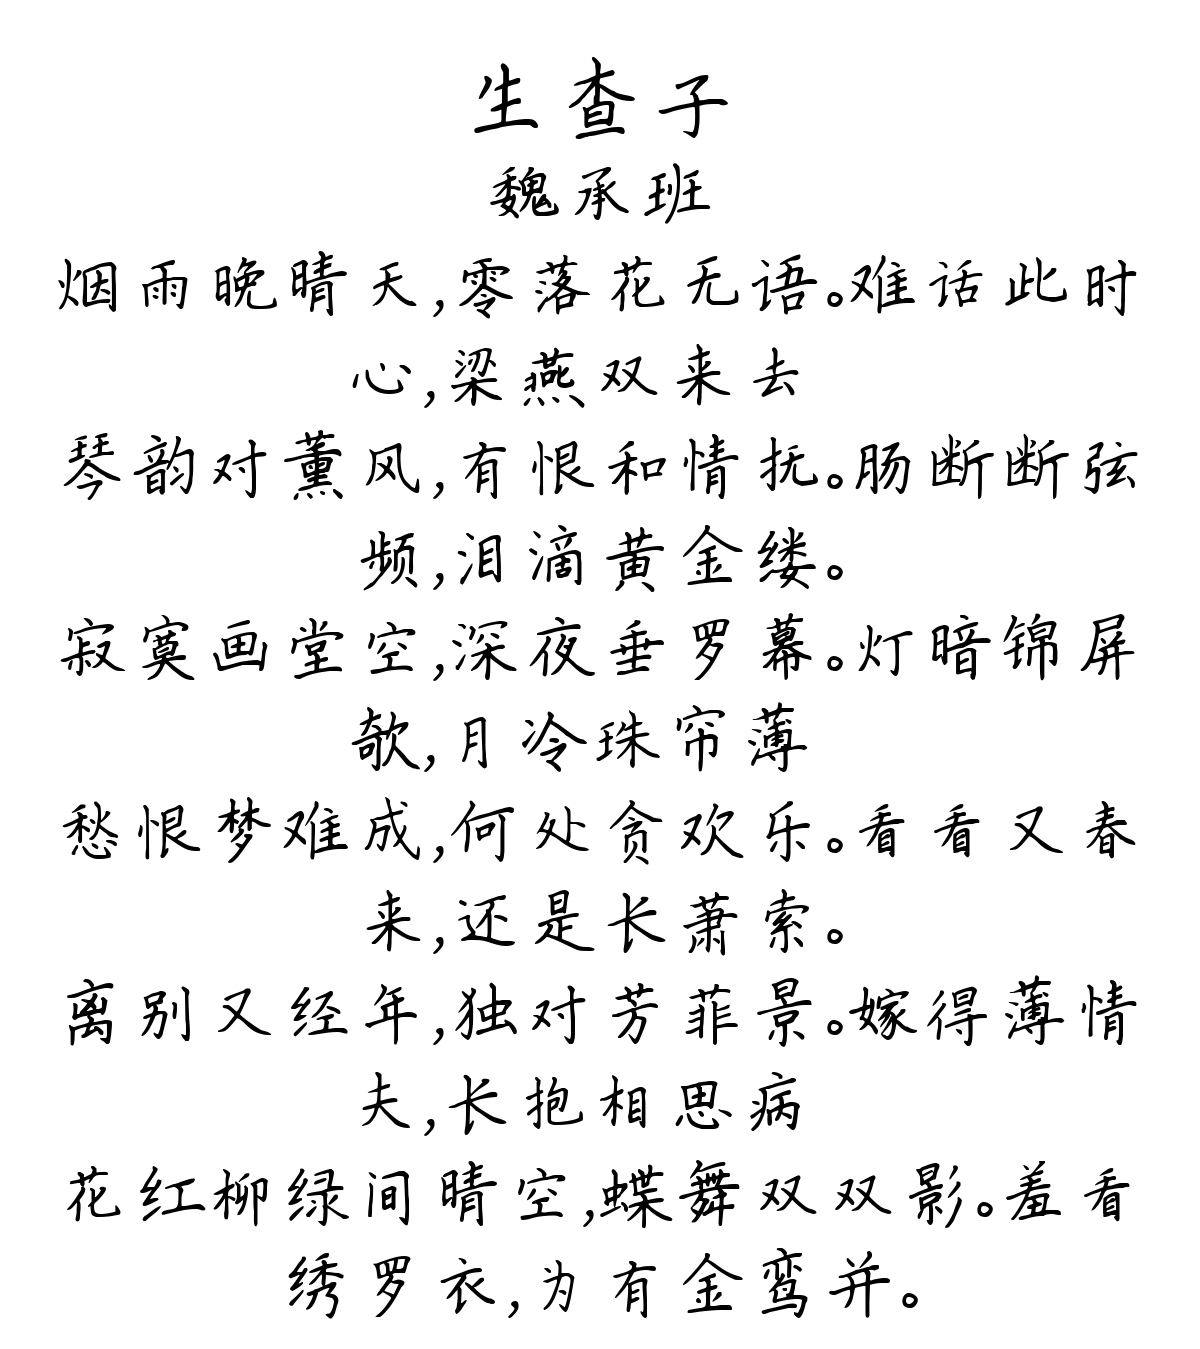 生查子
魏承班
烟雨晚晴天,零落花无语。难话此时
心,梁燕双来去
琴韵对薰风,有恨和情抚。肠断断弦
频,泪滴黄金缕。
寂寞画堂空,深夜垂罗幕。灯暗锦屏
欹,月冷珠帘薄
愁恨梦难成,何处贪欢乐。看看又春
来,还是长萧索。
离别又经年,独对芳菲景。嫁得薄情
夫,长抱相思病
花红柳绿间晴空,蝶舞双双影。羞看
绣罗衣,为有金鸾并。